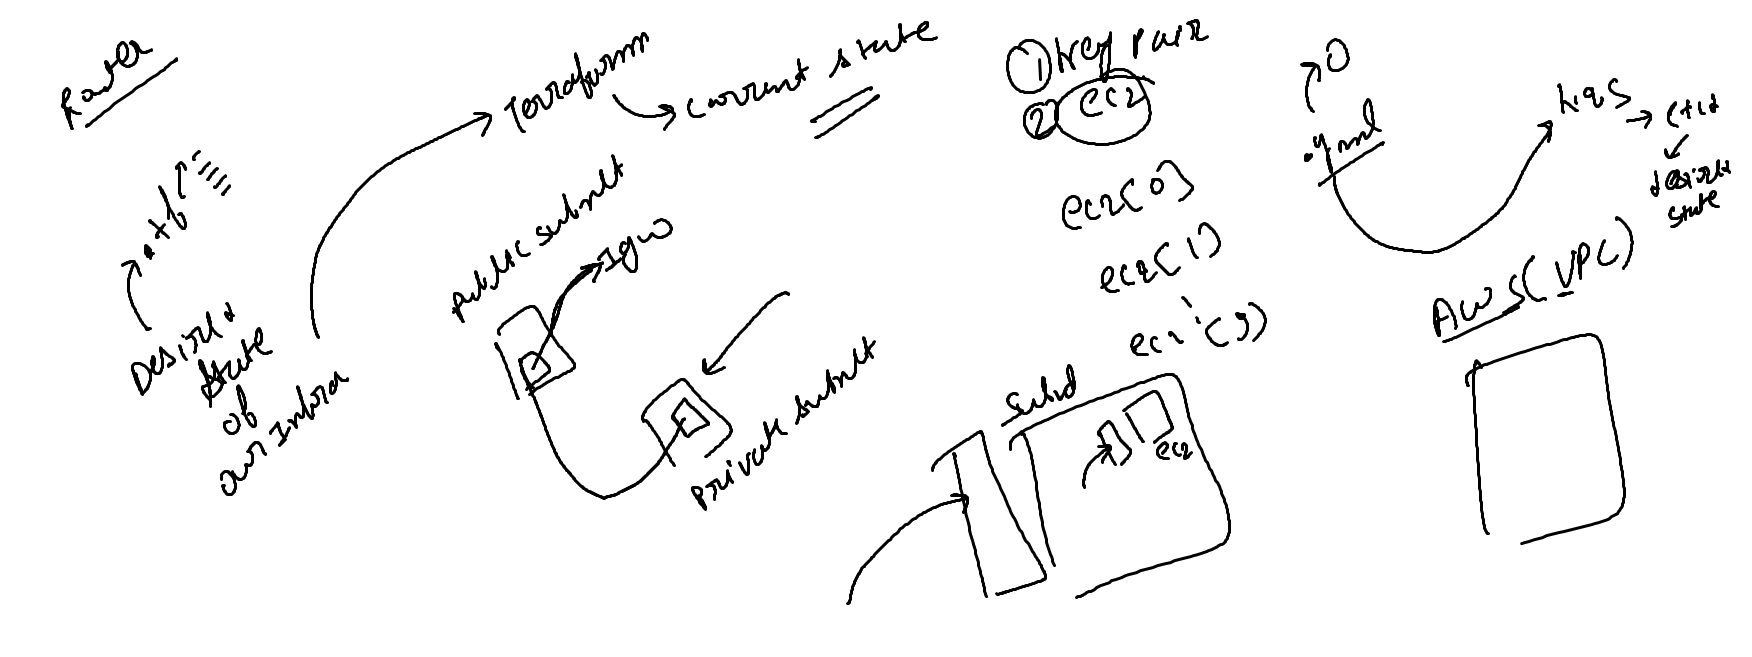 Router
Desired
state
of
our Infra
Terraform
current state
public subnet
Igw
private subnet
① key pair
② ec2
ec2[0]
ec2[1]
ec2[9]
subnet
ec2
.yml
0
k8s
etcd
desired
state
AWS(VPC)